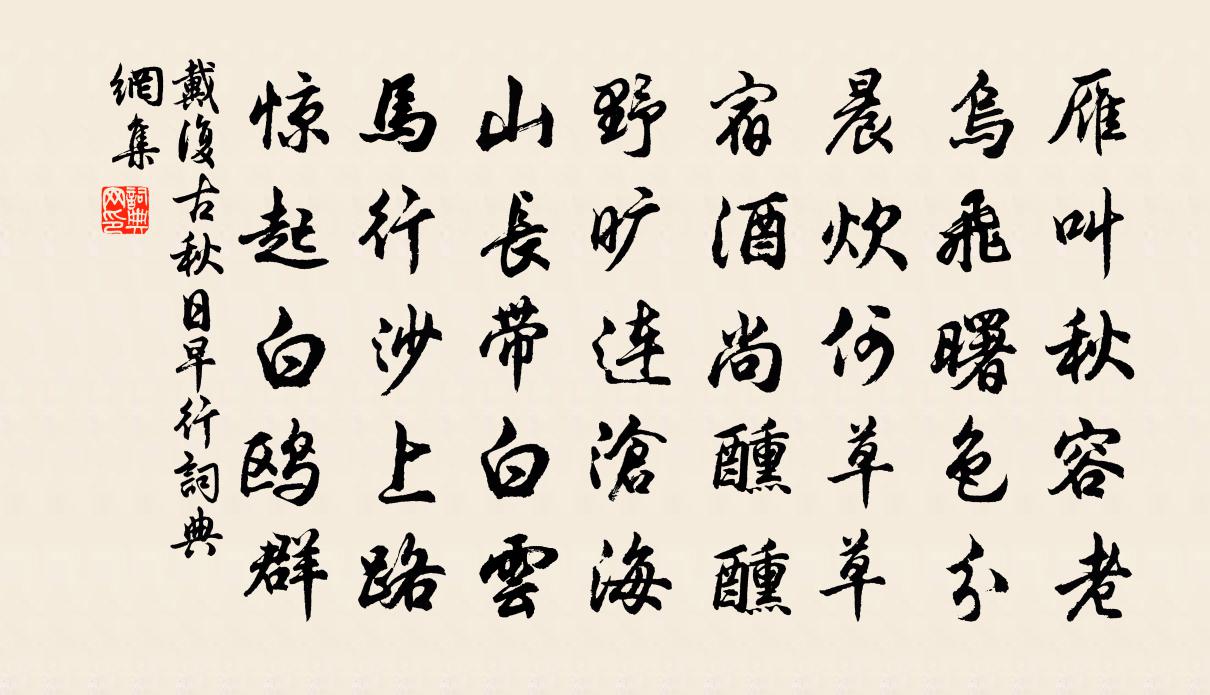 雁叫秋容老
烏飛曙色分
晨炊何草草
宿酒尚醺醺
野旷连滄海
山長带白雲
馬行沙上路
惊起白鸥群
戴復古秋日早行詞典
網集
詞典
网印